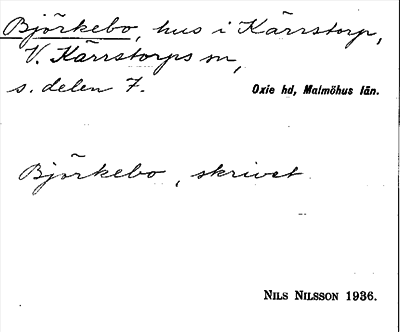 Björkebo, hus i Kärrstorp,
V. Kärrstorps sn,
s. delen 7.
Oxie hd, Malmöhus län.
Björkebo, skrivet
NILS NILSSON 1936.